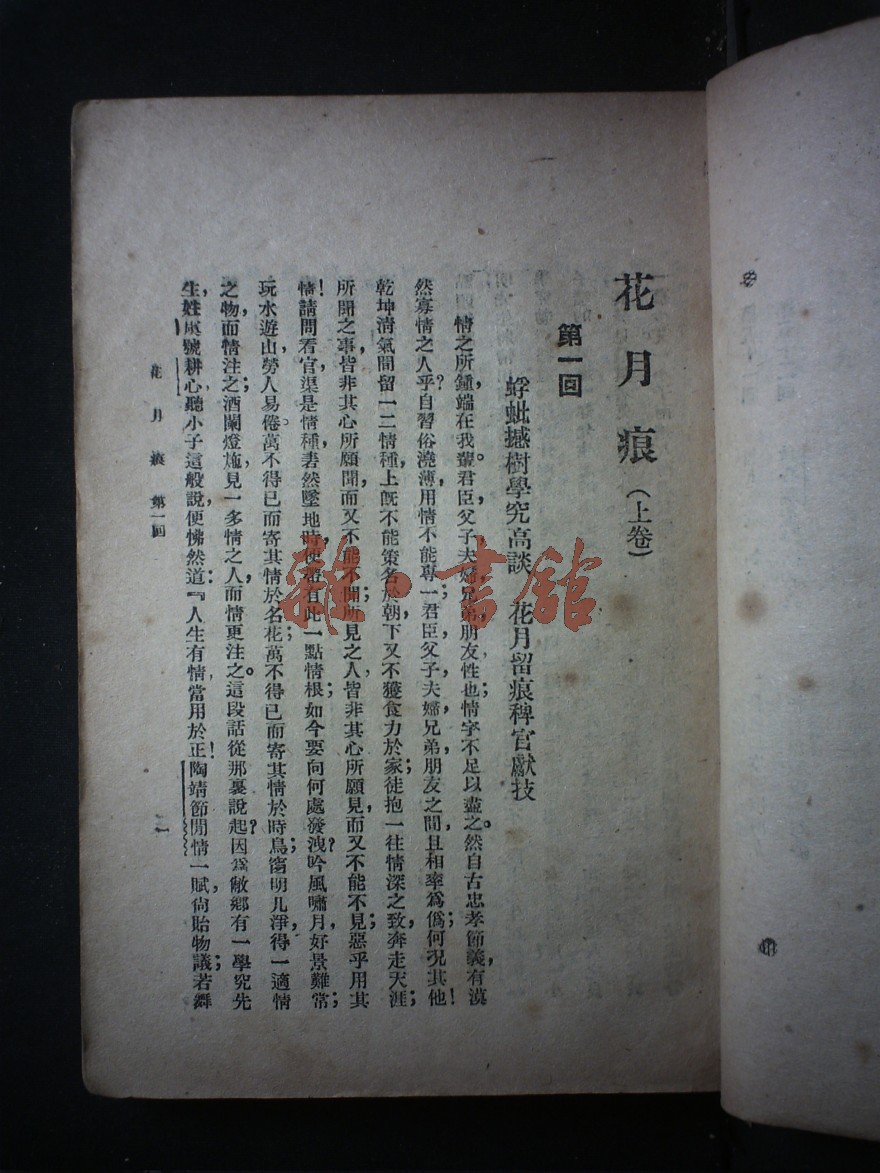 花月痕（上卷）
第一回
蜉蚍撼樹學究高談　花月留痕稗官獻技
情之所鍾，端在我輩。君臣父子夫婦兄弟朋友性也；情字不足以盡之。然自古忠孝節義，有漠
然寡情之人乎？自習俗澆薄，用情不能專一，君臣父子夫婦兄弟朋友之間，且相率爲僞；何況其他！
乾坤清氣間留一二情種，上旣不能策名於朝，下又不獲食力於家；徒抱一往情深之致，奔走天涯；
所聞之事，皆非其心所願聞，而又不能不聞；所見之人，皆非其心所願見，而又不能不見；惡乎用其
情！請問看官：渠是情種，砉然墜地時，便帶有此一點情根；如今要向何處發洩？吟風嘯月，好景難常；
玩水遊山，勞人易倦。萬不得已而寄其情於名花；萬不得已而寄其情於時鳥；窗明几淨，得一適情
之物，而情注之；酒闌燈灺，見一多情之人，而情更注之。這段話從那裏說起？因爲敝鄉有一學究先
生，姓虞，號耕心，聽小子這般說，便怫然道：『人生有情，當用於正！陶靖節閒情一賦，尙貽物議；若舞
花月痕　第一回
一
雜·書館